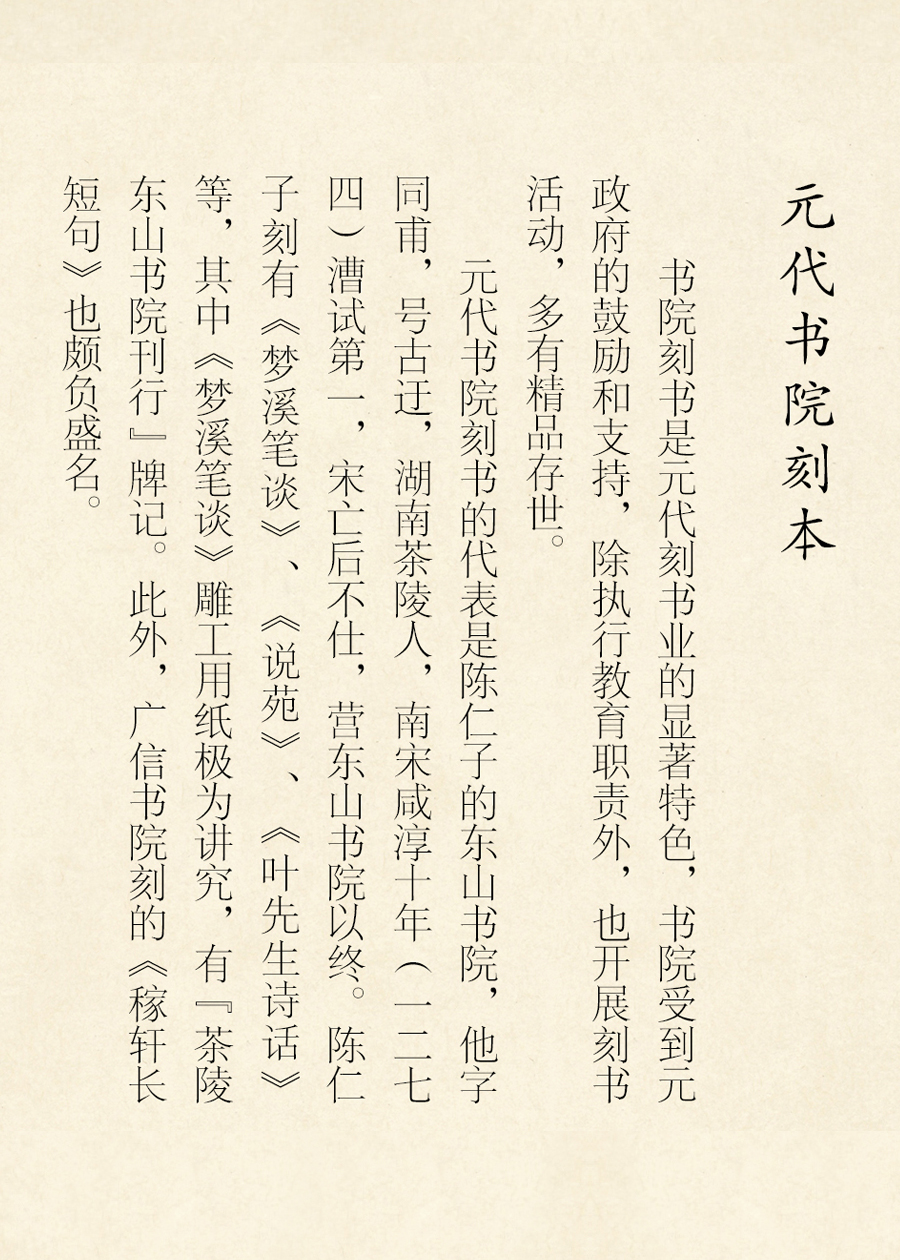 元代书院刻本
书院刻书是元代刻书业的显著特色，书院受到元
政府的鼓励和支持，除执行教育职责外，也开展刻书
活动，多有精品存世。
元代书院刻书的代表是陈仁子的东山书院，他字
同甫，号古迂，湖南茶陵人，南宋咸淳十年（一二七
四）漕试第一，宋亡后不仕，营东山书院以终。陈仁
子刻有《梦溪笔谈》、《说苑》、《叶先生诗话》
等，其中《梦溪笔谈》雕工用纸极为讲究，有『茶陵
东山书院刊行』牌记。此外，广信书院刻的《稼轩长
短句》也颇负盛名。